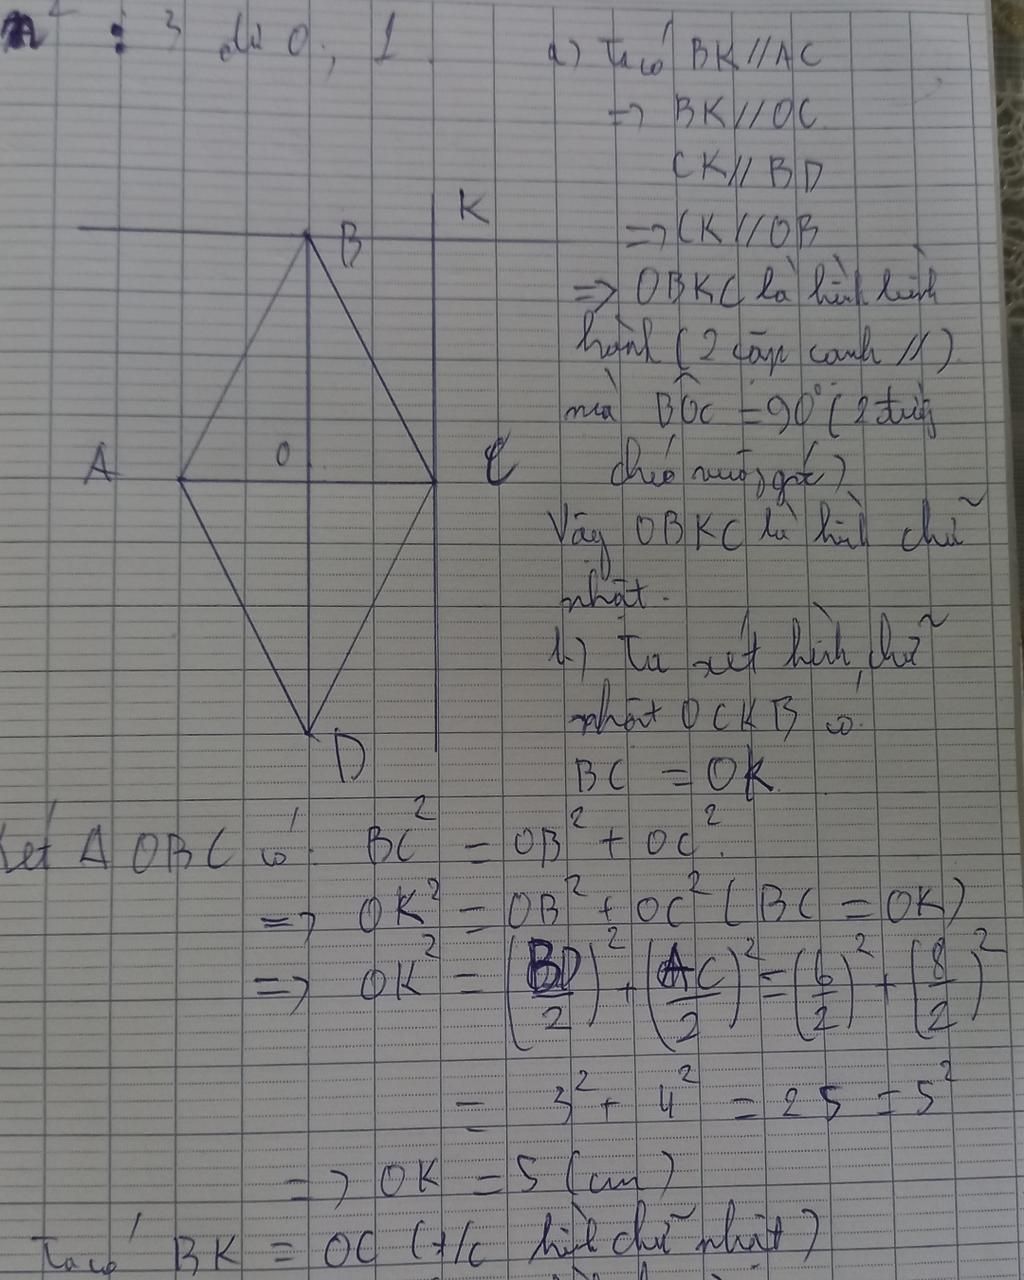 n² : 3 dư 0, 1
a) Ta có BK//AC
=> BK//OC
CK//BD
=> CK//OB
=> OBKC là hình bình
hành (2 cặp cạnh //)
mà BÔC = 90° (2 đường
chéo vuông góc)
Vậy OBKC là hình chữ
nhật.
K
B
A
O
C
D
b) Ta xét hình chữ
nhật OCKB có
BC = OK
Xét Δ OBC có: BC² = OB² + OC².
=> OK² = OB² + OC² (BC = OK)
=> OK² = (BD/2)² + (AC/2)² = (6/2)² + (8/2)²
= 3² + 4² = 25 = 5²
=> OK = 5 (cm)
Ta có BK = OC (t/c hình chữ nhật)